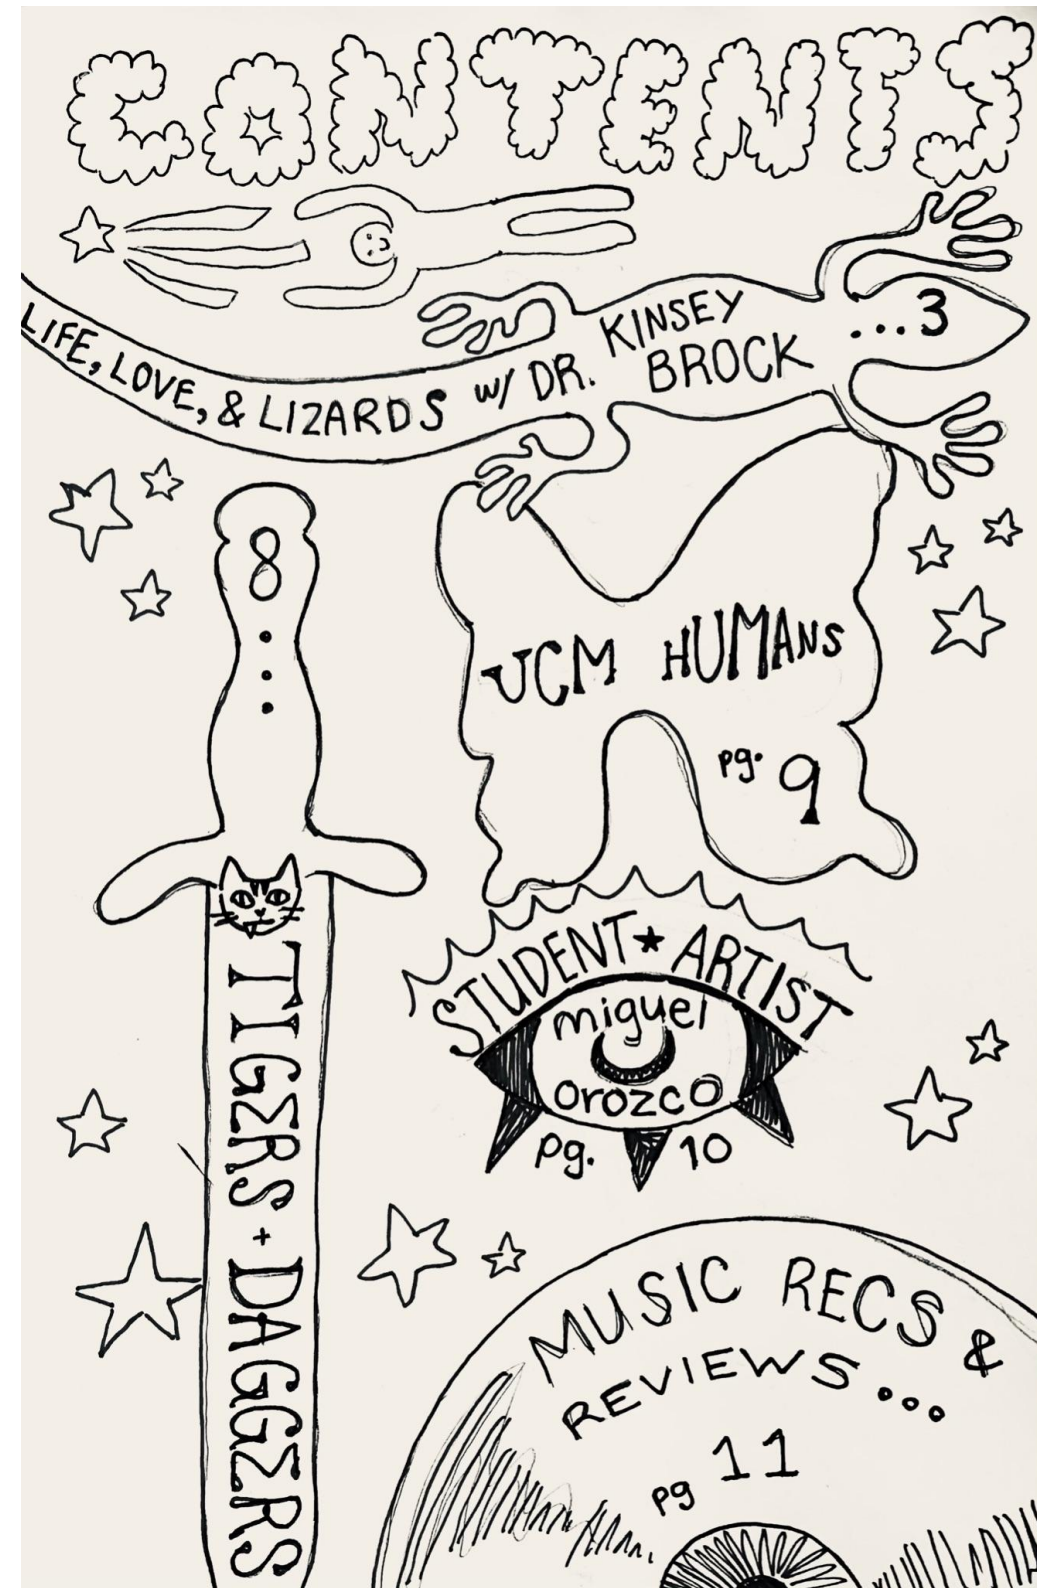 CONTENTS
LIFE, LOVE, & LIZARDS w/ DR. KINSEY BROCK ...3
8...
TIGERS + DAGGERS
UCM HUMANS
pg. 9
STUDENT ★ ARTIST
miguel
orozco
pg. 10
MUSIC RECS &
REVIEWS...
pg 11